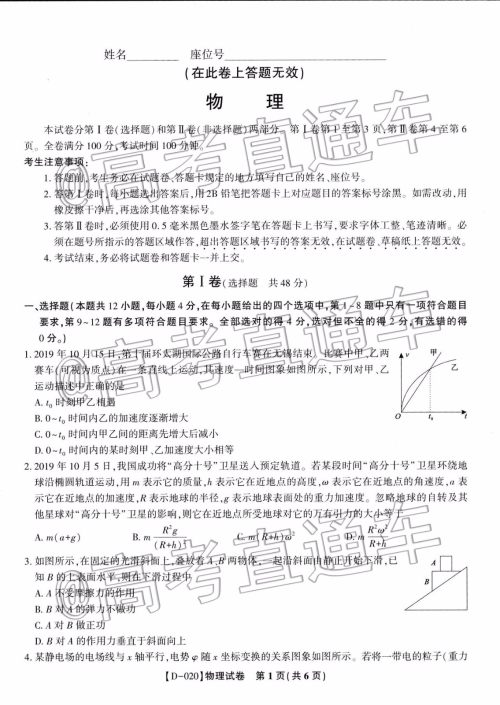 姓名 座位号
(在此卷上答题无效)
物 理
本试卷分第Ⅰ卷(选择题)和第Ⅱ卷(非选择题)两部分。第Ⅰ卷第1至第3页,第Ⅱ卷第4至第6
页。全卷满分100分,考试时间100分钟。
考生注意事项:
1. 答题前,考生务必在试题卷、答题卡规定的地方填写自己的姓名、座位号。
2. 答第Ⅰ卷时,每小题选出答案后,用2B铅笔把答题卡上对应题目的答案标号涂黑。如需改动,用
橡皮擦干净后,再选涂其他答案标号。
3. 答第Ⅱ卷时,必须使用0.5毫米黑色墨水签字笔在答题卡上书写,要求字体工整、笔迹清晰。必
须在题号所指示的答题区域作答,超出答题区域书写的答案无效,在试题卷、草稿纸上答题无效。
4. 考试结束,务必将试题卷和答题卡一并上交。
第Ⅰ卷(选择题 共48分)
一、选择题(本题共12小题,每小题4分,在每小题给出的四个选项中,第1~8题中只有一项符合题目
要求,第9~12题有多项符合题目要求。全部选对的得4分,选对但不全的得2分,有选错的得
0分。)
1. 2019年10月15日,第十届环太湖国际公路自行车赛在无锡结束。比赛中甲、乙两
赛车(可视为质点)在一条直线上运动,其速度一时间图象如图所示,下列对甲、乙
运动描述中正确的是
v 甲 乙 O t₀ t
A. t₀时刻甲乙相遇
B. 0~t₀时间内乙的加速度逐渐增大
C. 0~t₀时间内甲乙间的距离先增大后减小
D. 0~t₀时间内的某时刻甲、乙加速度大小相等
2. 2019年10月5日,我国成功将“高分十号”卫星送入预定轨道。若某段时间“高分十号”卫星环绕地
球沿椭圆轨道运动,用m表示它的质量,h表示它在近地点的高度,ω表示它在近地点的角速度,a表
示它在近地点的加速度,R表示地球的半径,g表示地球表面处的重力加速度。忽略地球的自转及其
他星球对“高分十号”卫星的影响,则它在近地点所受地球对它的万有引力的大小等于
A. m(a+g) B. m R²g/(R+h)² C. m(R+h)ω² D. m R²ω²/(R+h)
3. 如图所示,在固定的光滑斜面上,叠放着A、B两物体,一起沿斜面由静止开始下滑,已
知B的上表面水平,则在下滑过程中
A
B
A. A不受摩擦力的作用
B. B对A的弹力不做功
C. A对B做正功
D. B对A的作用力垂直于斜面向上
4. 某静电场的电场线与x轴平行,电势φ随x坐标变换的关系图象如图所示。若将一带电的粒子(重力
【D-020】物理试卷 第1页(共6页)
@高考直通车
@高考直通车
@高考直通车